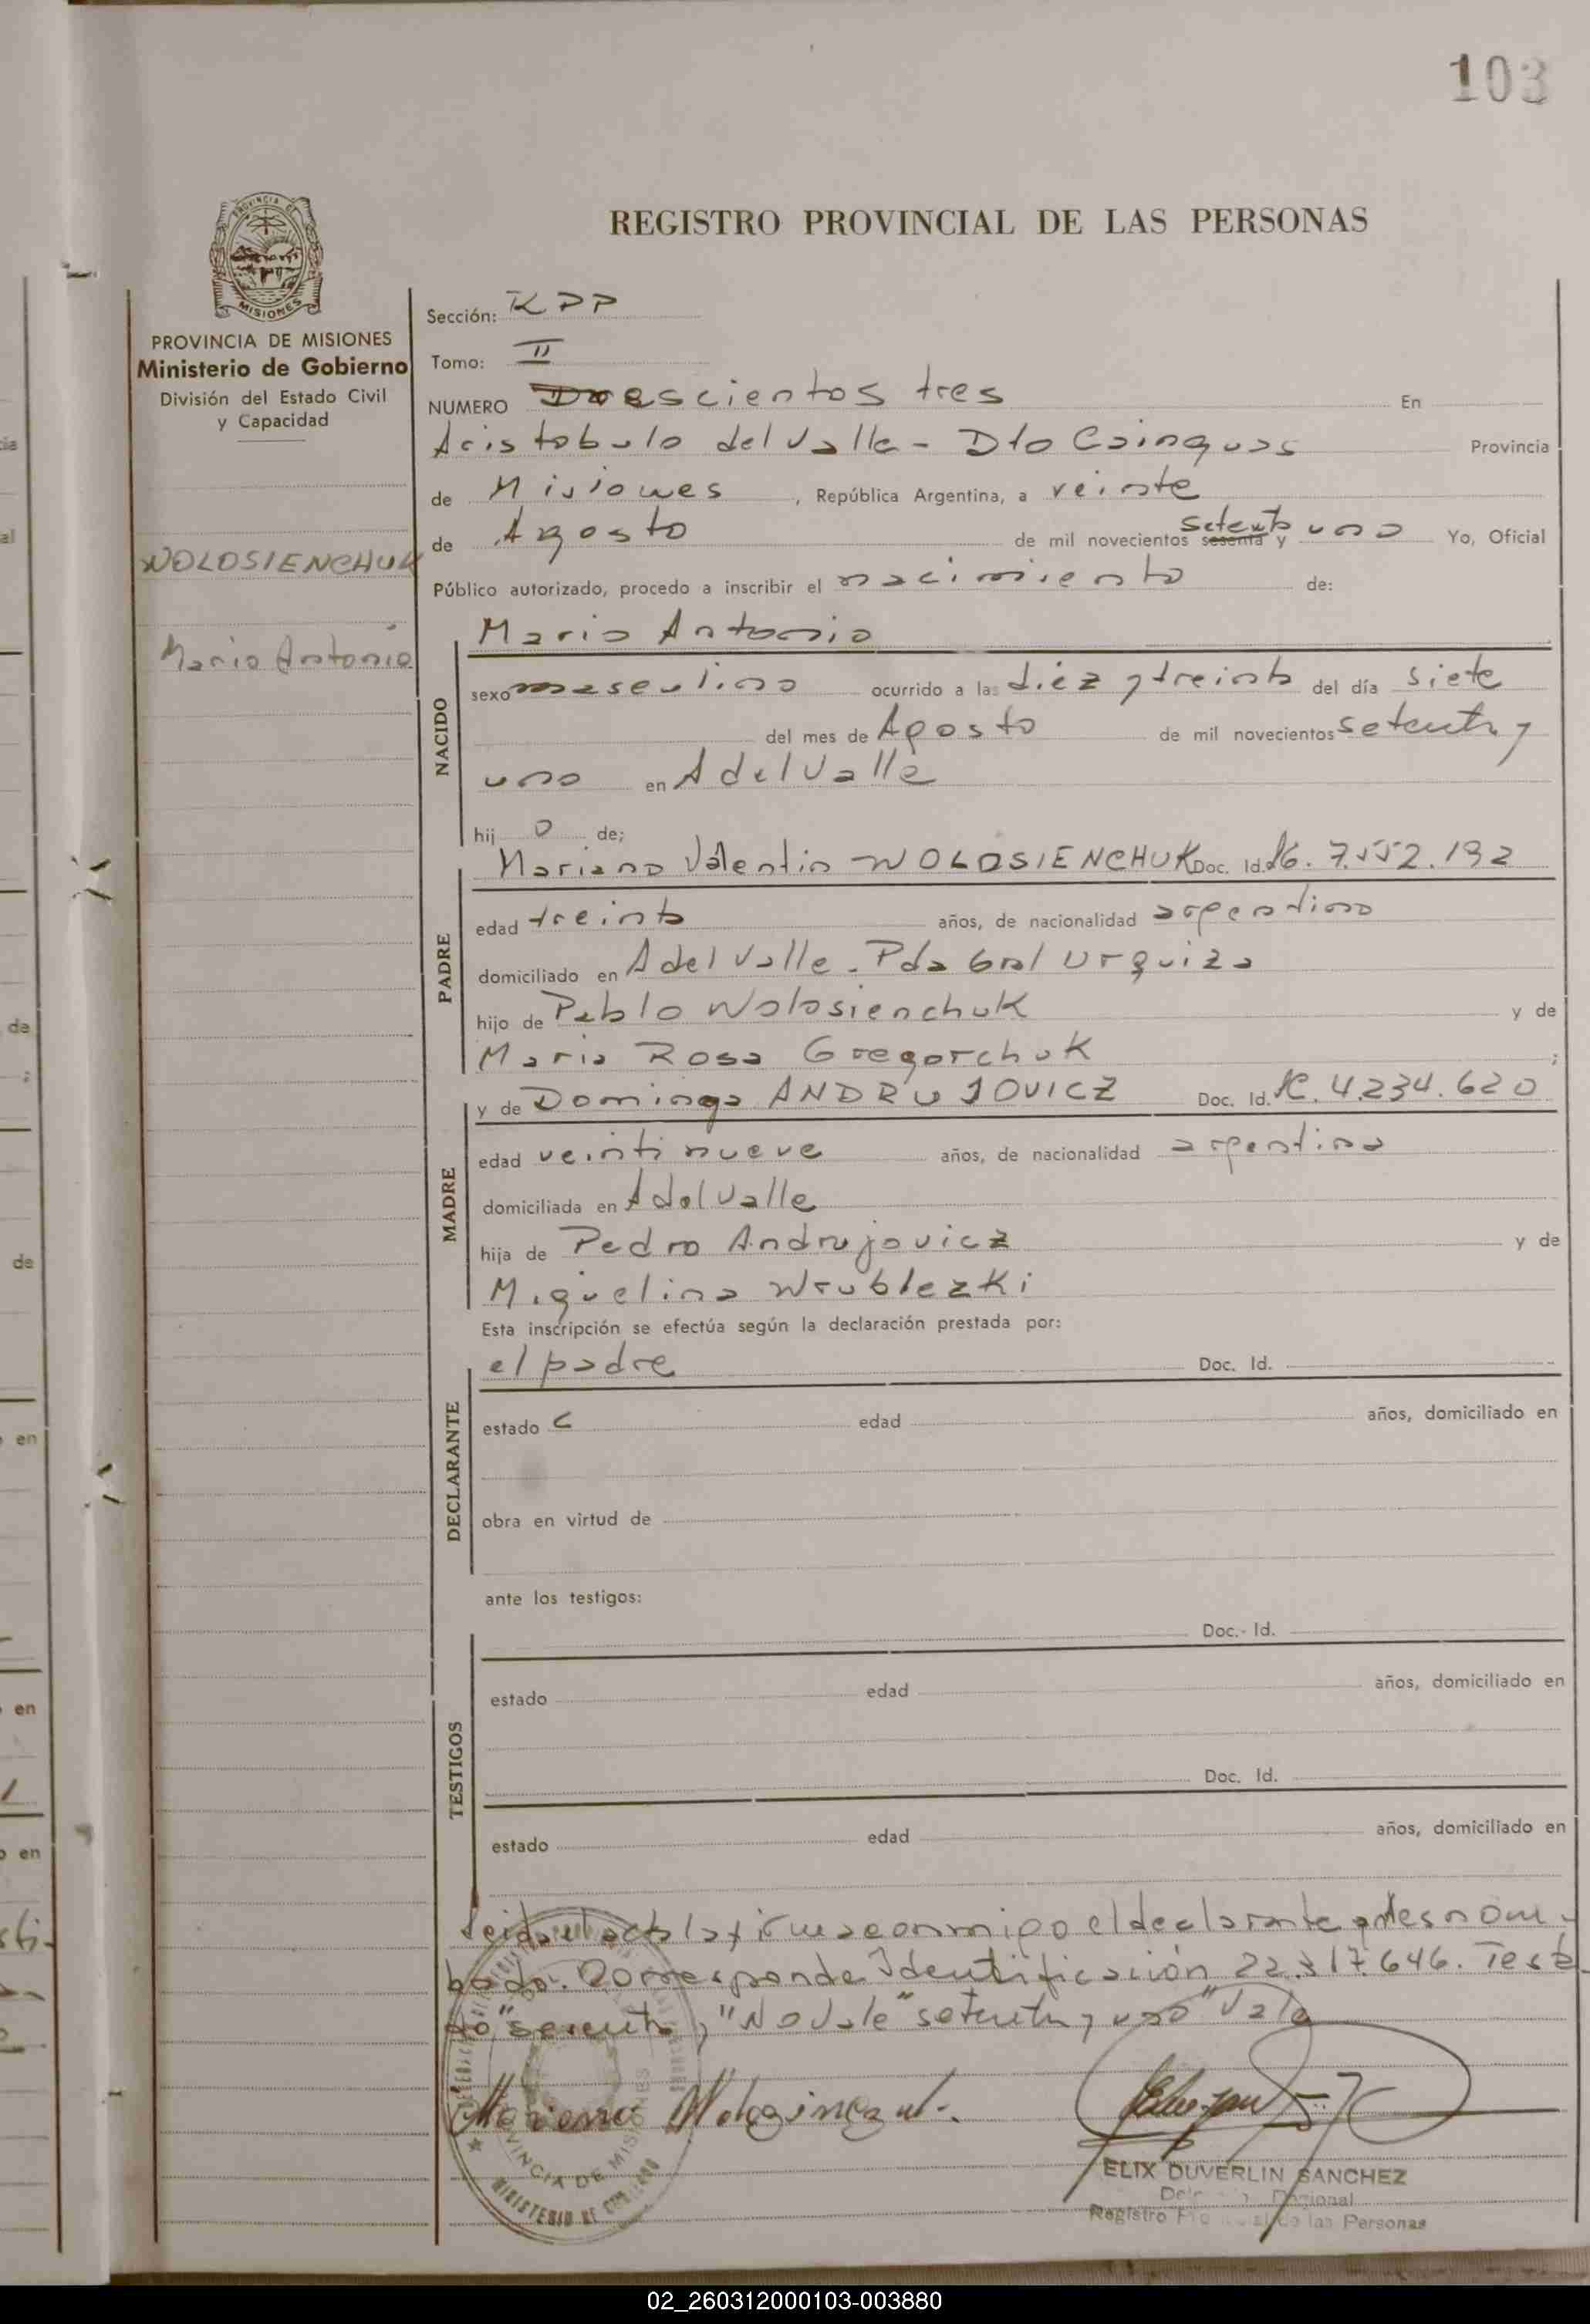 103
REGISTRO PROVINCIAL DE LAS PERSONAS
PROVINCIA DE
MISIONES
PROVINCIA DE MISIONES
Ministerio de Gobierno
División del Estado Civil
y Capacidad
WOLOSIENCHUK
Mario Antonio
Sección: RPP
Tomo: II
NUMERO Doscientos tres En
Aristobulo del Valle - Dto Cainguas Provincia
de Misiones, República Argentina, a veinte
de Agosto de mil novecientos sesenta setenta y uno Yo, Oficial
Público autorizado, procedo a inscribir el nacimiento de:
NACIDO
Mario Antonio
sexo masculino ocurrido a las diez y treinta del día siete
del mes de Agosto de mil novecientos setenta y
uno en A del Valle
hij o de;
PADRE
Mariano Valentin WOLOSIENCHUK Doc. Id. 7.552.192
edad treinta años, de nacionalidad argentino
domiciliado en A del Valle - Pda Gral Urquiza
hijo de Pablo Wolosienchuk y de
Maria Rosa Gregorchuk ;
MADRE
y de Dominga ANDRUJOVICZ Doc. Id. 4.234.620
edad veintinueve años, de nacionalidad argentina
domiciliada en A del Valle
hija de Pedro Andrujovicz y de
Miguelina Wrublezki
Esta inscripción se efectúa según la declaración prestada por:
DECLARANTE
el padre Doc. Id.
estado C edad años, domiciliado en
obra en virtud de
ante los testigos:
TESTIGOS
Doc. Id.
estado edad años, domiciliado en
Doc. Id.
estado edad años, domiciliado en
Leida el acta la firma conmigo el declarante antes nom-
brado. Corresponde Identificación 22.317.646. Testa
do "sesenta", "No vale" setenta y uno "Vale
PROVINCIA DE MISIONES
MINISTERIO DE GOBIERNO
ELIX DUVERLIN SANCHEZ
Registro Provincial de las Personas
02_260312000103-003880